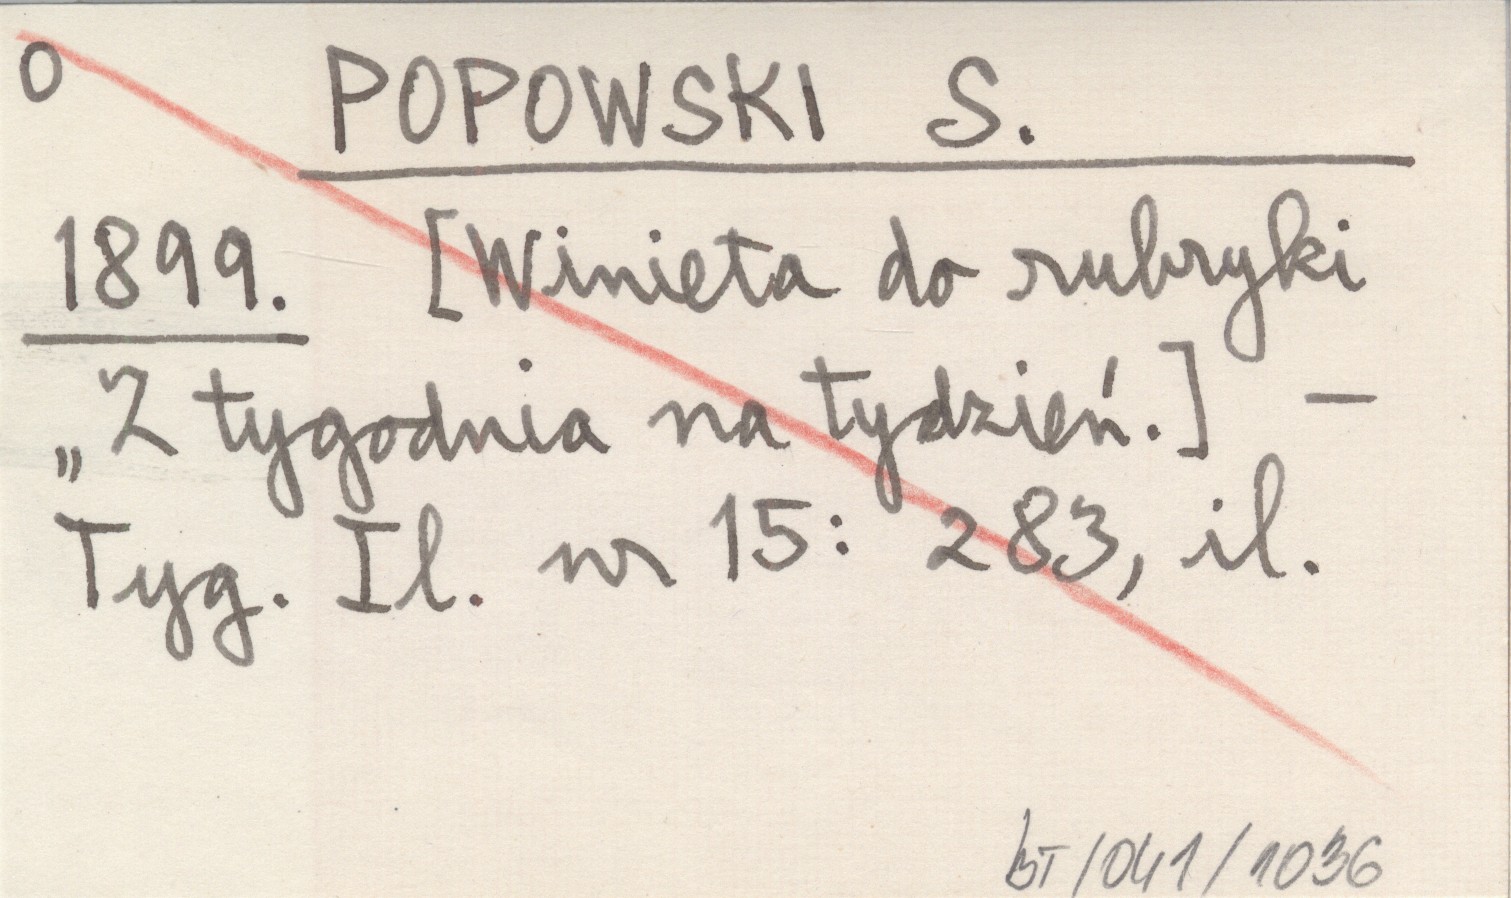 O POPOWSKI S.
1899. [Winieta do rubryki
„Z tygodnia na tydzień.] —
Tyg. Il. nr 15: 283, il.
bT/041/1036